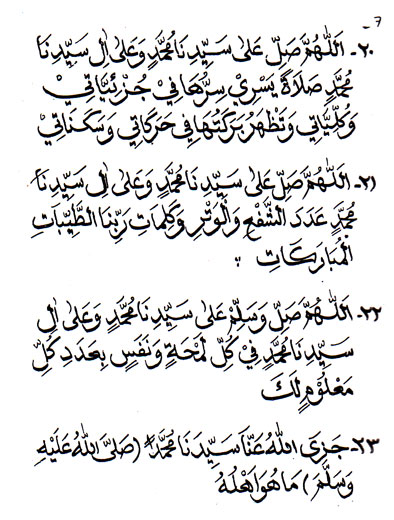 -٦
٢٠- اَللّٰهُمَّ صَلِّ عَلىٰ سَيِّدِنَا مُحَمَّدٍ وَعَلىٰ اٰلِ سَيِّدِنَا
مُحَمَّدٍ صَلَاةً يَسْرِيْ سِرُّهَا فِيْ جُزْئِيَّاتِيْ
وَكُلِّيَّاتِيْ وَتَظْهَرُ بَرَكَتُهَا فِيْ حَرَكَاتِيْ وَسَكَنَاتِيْ
٢١- اَللّٰهُمَّ صَلِّ عَلىٰ سَيِّدِنَا مُحَمَّدٍ وَعَلىٰ اٰلِ سَيِّدِنَا
مُحَمَّدٍ عَدَدَ الشَّفْعِ وَالْوِتْرِ وَكَلِمَاتِ رَبِّنَا الطَّيِّبَاتِ
الْمُبَارَكَاتِ
٢٢- اَللّٰهُمَّ صَلِّ وَسَلِّمْ عَلىٰ سَيِّدِنَا مُحَمَّدٍ وَعَلىٰ اٰلِ
سَيِّدِنَا مُحَمَّدٍ فِيْ كُلِّ لَمْحَةٍ وَنَفَسٍ بِعَدَدِ كُلِّ
مَعْلُوْمٍ لَكَ
٢٣- جَزَى اللّٰهُ عَنَّا سَيِّدَنَا مُحَمَّدًا (صَلَّى اللّٰهُ عَلَيْهِ
وَسَلَّمَ) مَا هُوَ اَهْلُهُ